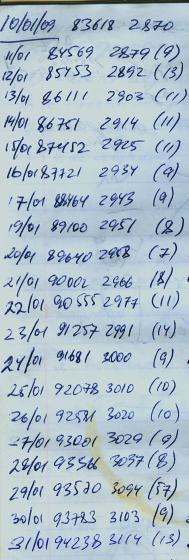 10/01/09 83618 2870
11/01 84569 2879 (9)
12/01 85453 2892 (13)
13/01 86111 2903 (11)
14/01 86751 2914 (11)
15/01 87452 2925 (11)
16/01 87721 2934 (9)
17/01 88464 2943 (9)
19/01 89100 2951 (8)
20/01 89640 2958 (7)
21/01 90002 2966 (8)
22/01 90555 2977 (11)
23/01 91257 2991 (14)
24/01 91681 3000 (9)
25/01 92078 3010 (10)
26/01 92581 3020 (10)
27/01 93001 3029 (9)
28/01 93566 3037 (8)
29/01 93570 3094 (57)
30/01 93783 3103 (9)
31/01 94238 3114 (13)